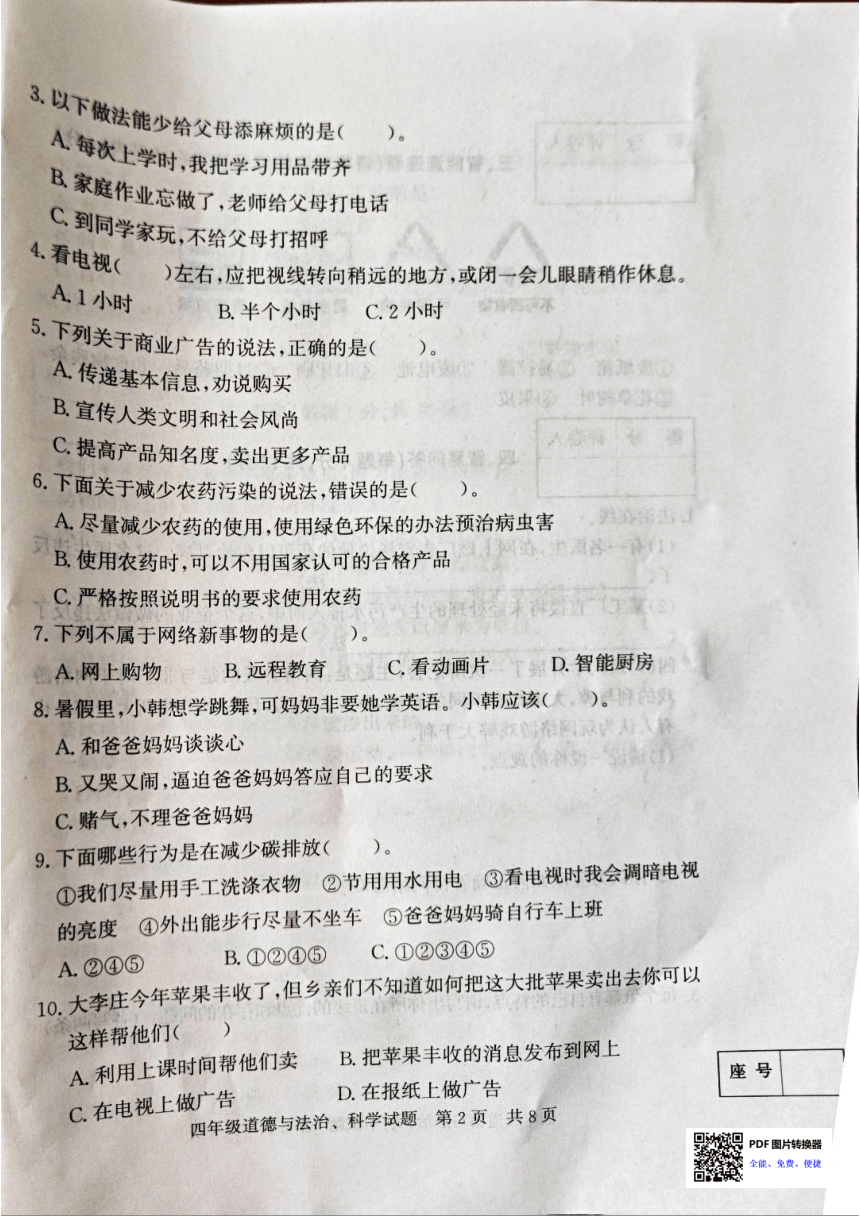 3. 以下做法能少给父母添麻烦的是(　　)。
A. 每次上学时,我把学习用品带齐
B. 家庭作业忘做了,老师给父母打电话
C. 到同学家玩,不给父母打招呼
4. 看电视(　　)左右,应把视线转向稍远的地方,或闭一会儿眼睛稍作休息。
A. 1小时　　B. 半个小时　　C. 2小时
5. 下列关于商业广告的说法,正确的是(　　)。
A. 传递基本信息,劝说购买
B. 宣传人类文明和社会风尚
C. 提高产品知名度,卖出更多产品
6. 下面关于减少农药污染的说法,错误的是(　　)。
A. 尽量减少农药的使用,使用绿色环保的办法预治病虫害
B. 使用农药时,可以不用国家认可的合格产品
C. 严格按照说明书的要求使用农药
7. 下列不属于网络新事物的是(　　)。
A. 网上购物　　B. 远程教育　　C. 看动画片　　D. 智能厨房
8. 暑假里,小韩想学跳舞,可妈妈非要她学英语。小韩应该(　　)。
A. 和爸爸妈妈谈谈心
B. 又哭又闹,逼迫爸爸妈妈答应自己的要求
C. 赌气,不理爸爸妈妈
9. 下面哪些行为是在减少碳排放(　　)。
①我们尽量用手工洗涤衣物　②节用用水用电　③看电视时我会调暗电视
的亮度　④外出能步行尽量不坐车　⑤爸爸妈妈骑自行车上班
A. ②④⑤　　B. ①②④⑤　　C. ①②③④⑤
10. 大李庄今年苹果丰收了,但乡亲们不知道如何把这大批苹果卖出去你可以
这样帮他们(　　)
A. 利用上课时间帮他们卖　　B. 把苹果丰收的消息发布到网上
C. 在电视上做广告　　D. 在报纸上做广告
座号
四年级道德与法治、科学试题　第2页　共8页
PDF图片转换器
全能、免费、便捷